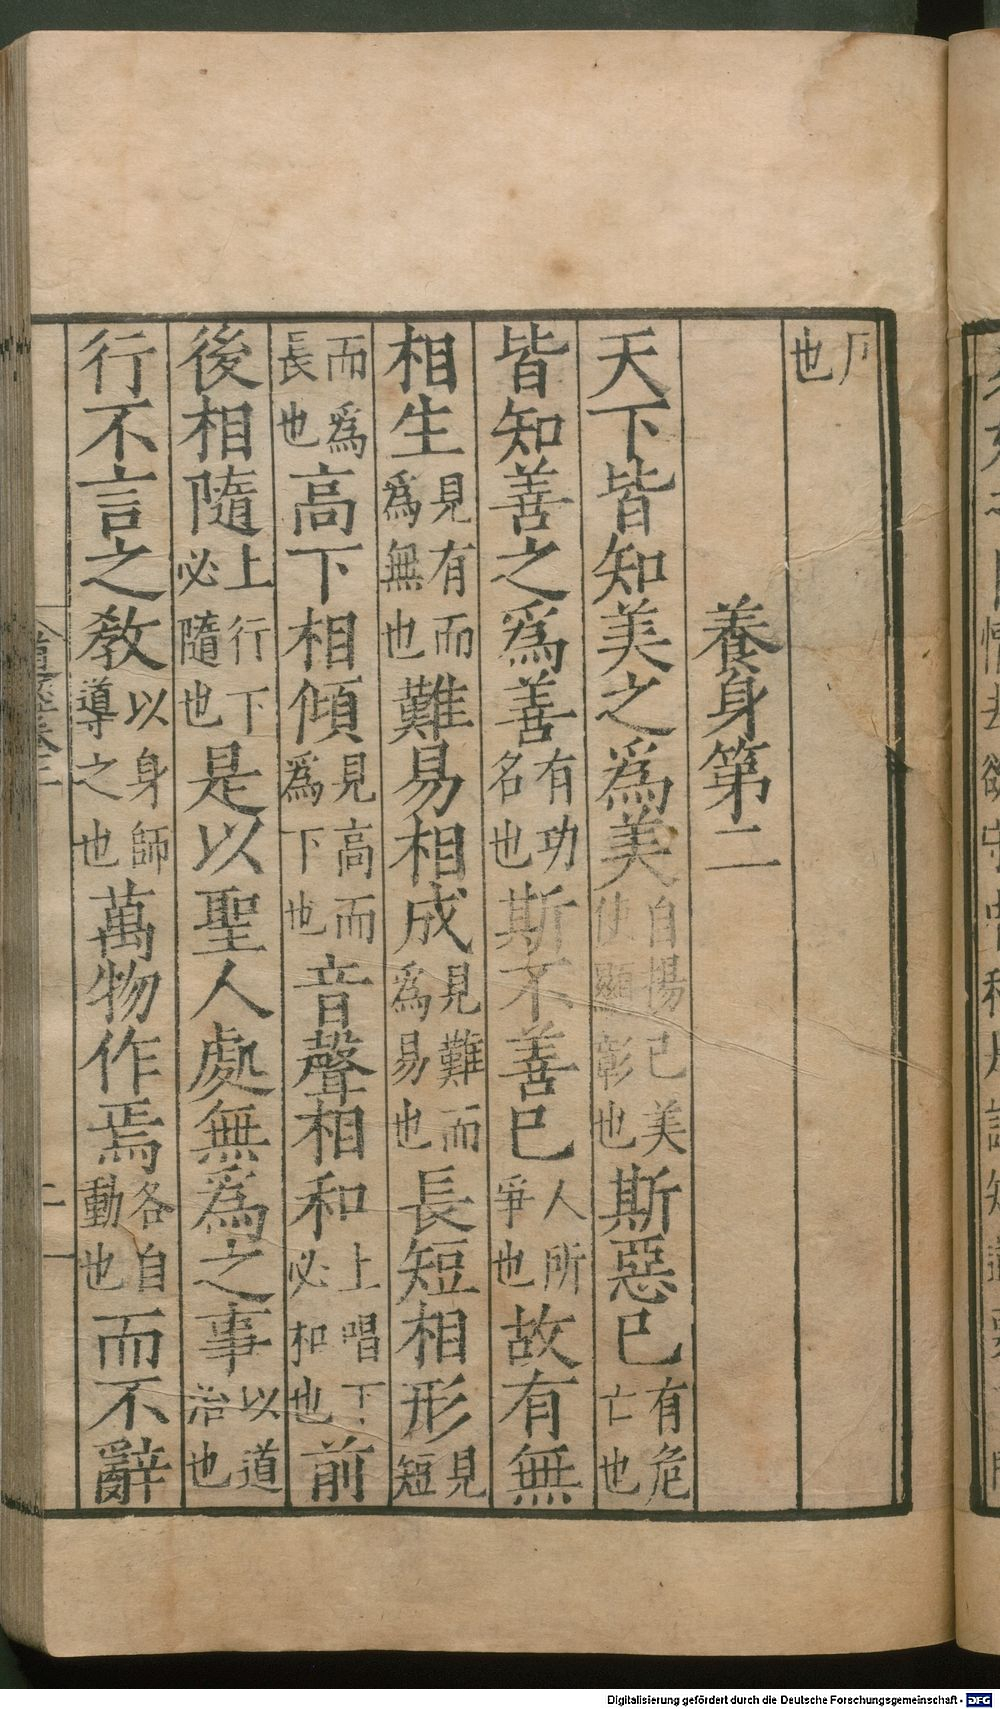 戶也
養身第二
天下皆知美之爲美自揚己美使顯彰也斯惡已有危亡也
皆知善之爲善有功名也斯不善已人所爭也故有無
相生見有而爲無也難易相成見難而爲易也長短相形見短
而爲長也高下相傾見高而爲下也音聲相和上唱下必和也前
後相隨上行下必隨也是以聖人處無爲之事以道治也
行不言之教以身師導之也萬物作焉各自動也而不辭
Digitalisierung gefördert durch die Deutsche Forschungsgemeinschaft - DFG